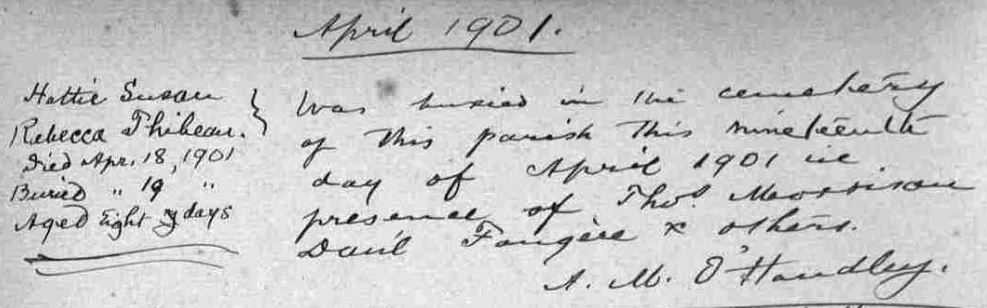 April 1901.
Hattie Susan
Rebecca Thibeau.
Died Apr. 18, 1901
Buried " 19 "
Aged Eight days
Was buried in the cemetery
of this parish this nineteenth
day of April 1901 in
presence of Thos. Morrison
Dan'l Fougère & others.
A. M. O'Handley.